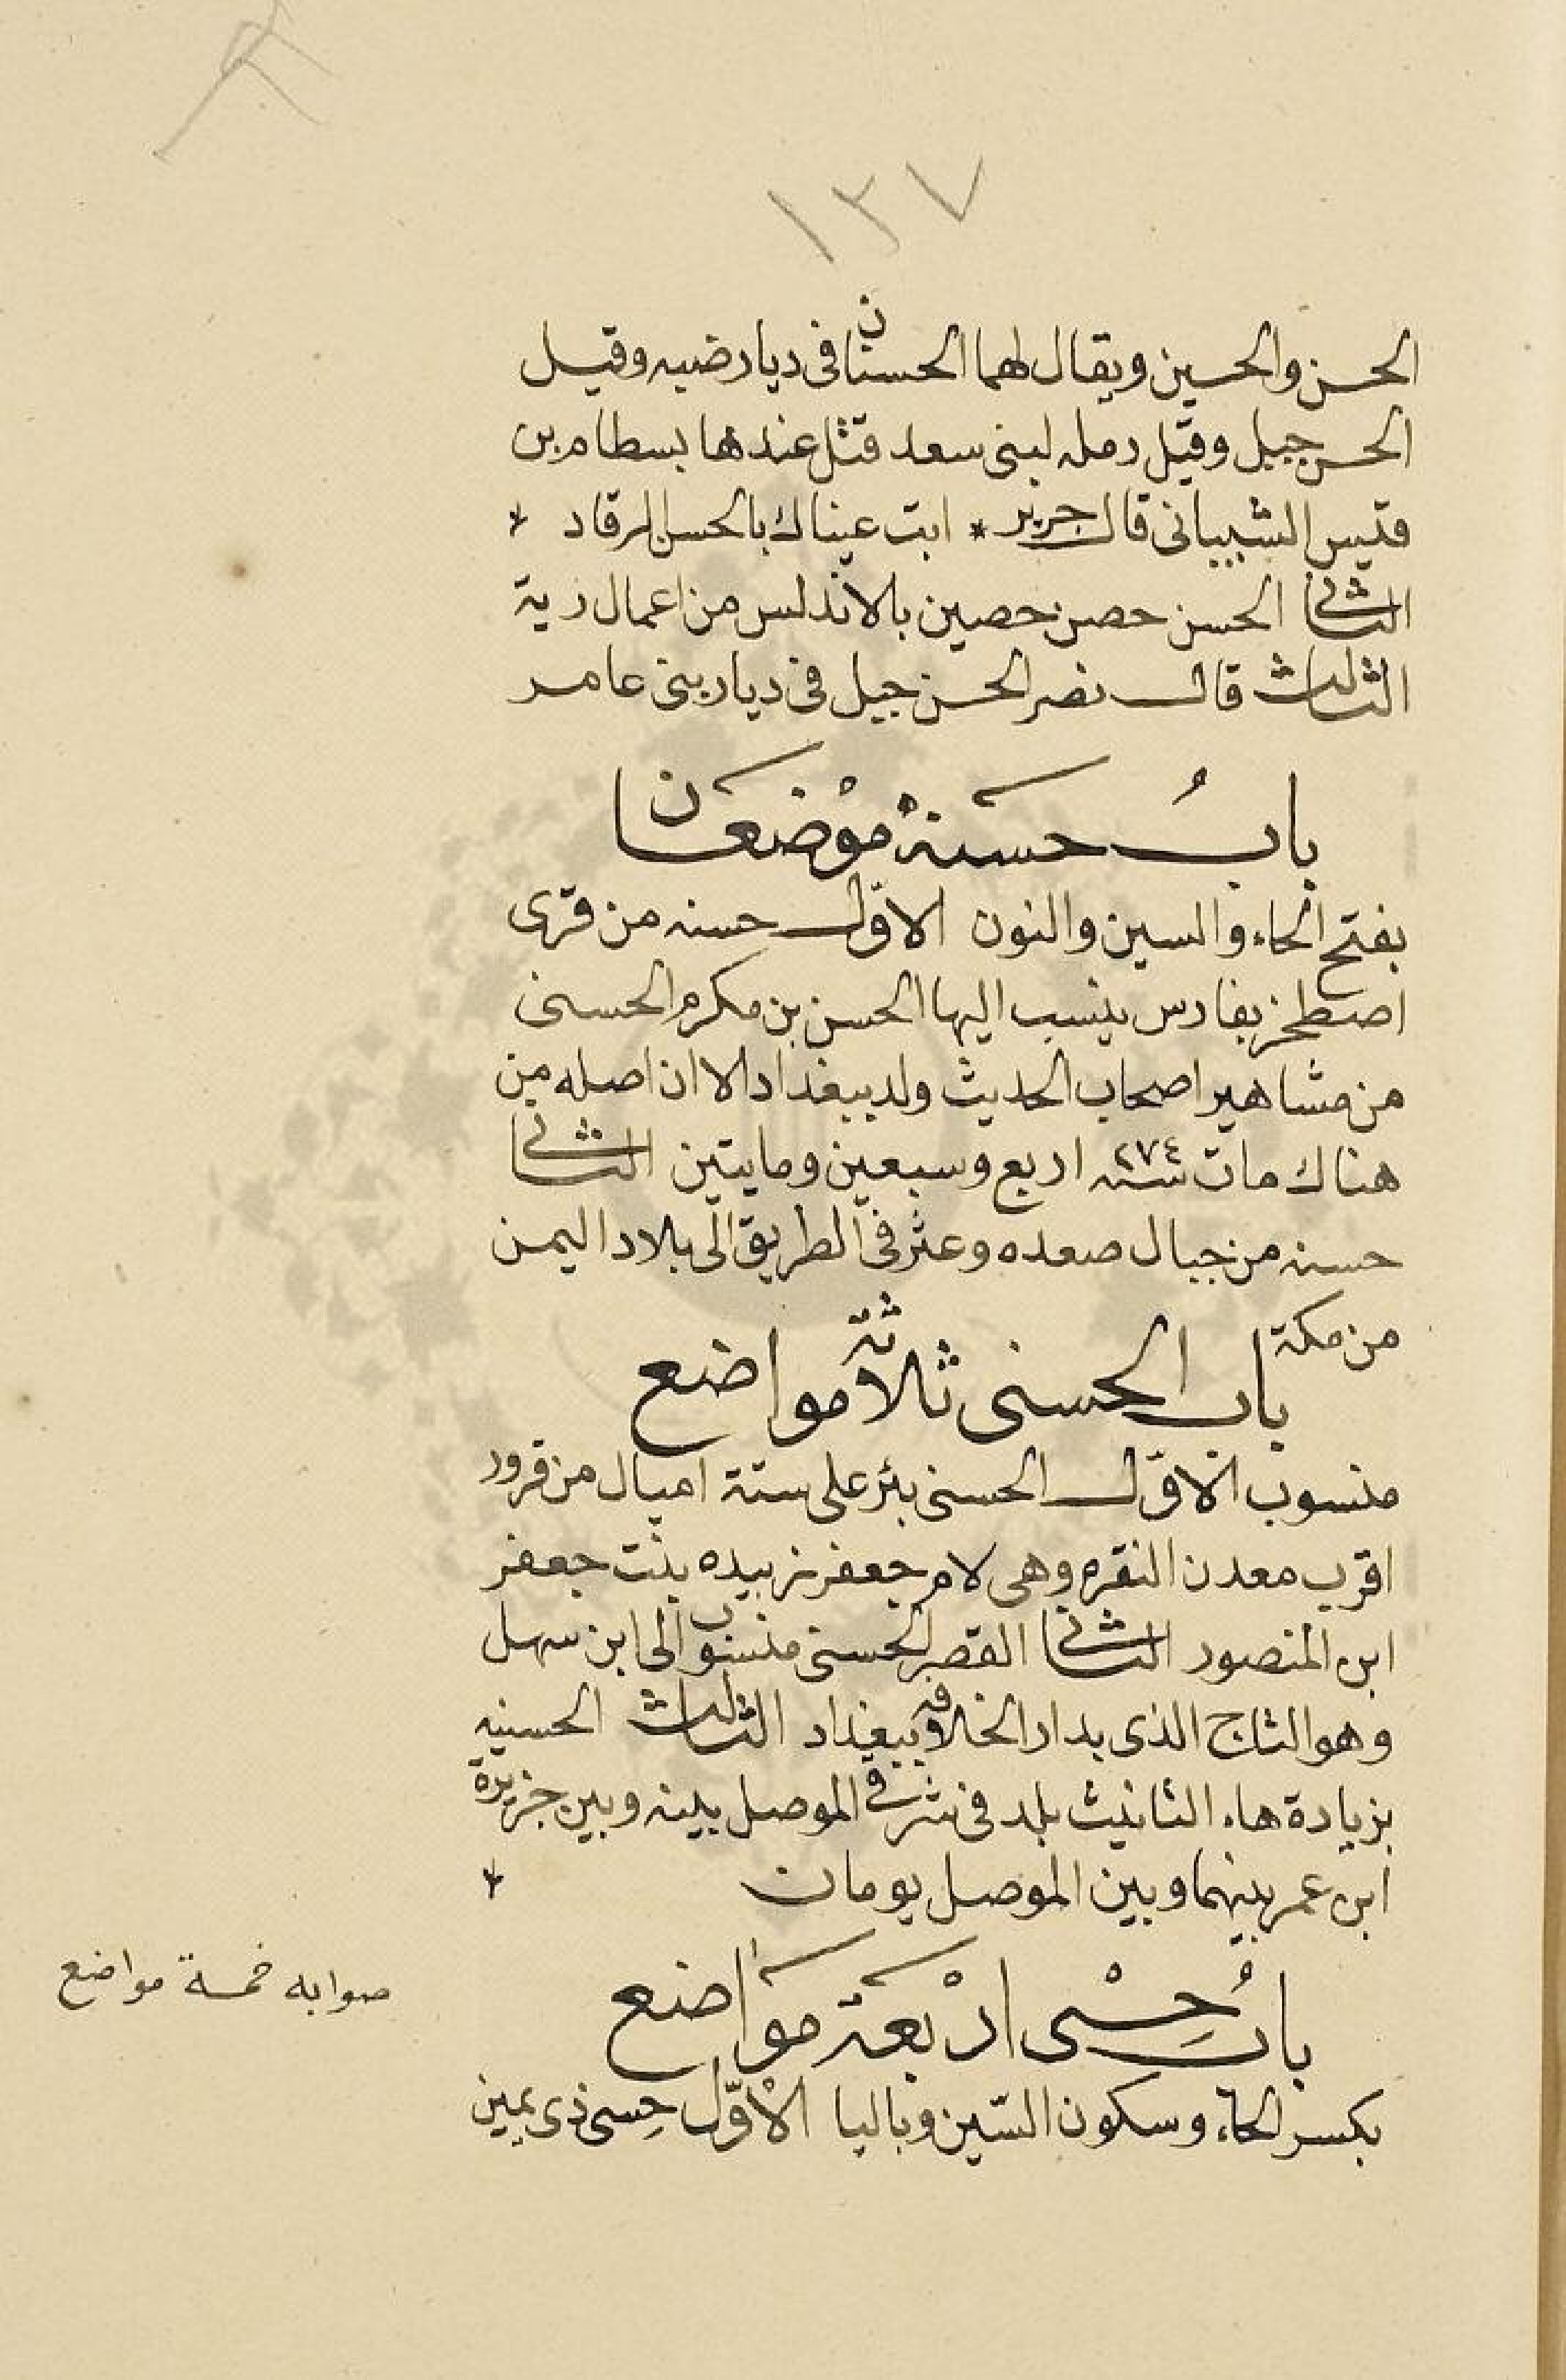 ١٣٧
الحسن والحسين ويقال لهما الحسنان فى ديار ضبه وقيل
الحسن جبيل وقيل رمله لبنى سعد قتل عندها بسطام بن
قيس الشيبانى قال جرير * ابت عيناك بالحسن الرقاد *
الثانى الحسن حصن حصين بالاندلس من اعمال رية
الثالث قال نصر الحسن جبل فى ديار بنى عامر
بابُ حسَنهْ موْضعَان
بفتح الحاء والسين والنون الاوّل حسنه من قرى
اصطخر بفارس ينسب اليها الحسن بن مكرم الحسنى
من مشاهير اصحاب الحديث ولد ببغداد الا ان اصله من
هناك مات سنه ٢٧٤ اربع وسبعين ومايتين الثانى
حسنه من جبال صعده وعثر فى الطريق الى بلاد اليمن
من مكة
باب الحسنى ثلاثة مواضع
منسوب الاوّل الحسنى بئر على ستة اميال من قرور
اقرب معدن النقره وهى لام جعفر زبيده بنت جعفر
ابن المنصور الثانى القصر الحسنى منسوب الى ابن سهل
وهو التاج الذى بدار الخلافه ببغداد الثالث الحسنيه
بزيادة هاء التانيث بلد فى شرقى الموصل بينه وبين جزيرة
ابن عمر بينهما وبين الموصل يومان *
بابُ حِسْى ارْبعَة موَاضع
صوابه خمسة مواضع
بكسر الحاء وسكون السّين وباليا الاْوّل حِسى ذى يمين